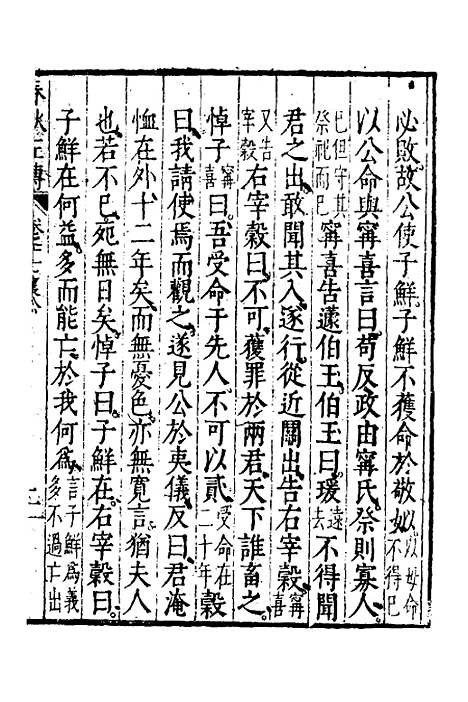 必敗故公使子鮮子鮮不獲命於敬姒以母命不得已
以公命與甯喜言曰苟反政由甯氏祭則寡人
巳但守其祭祀而巳甯喜告蘧伯玉伯玉曰瑗遠去不得聞
君之出敢聞其入遂行從近關出告右宰穀甯喜
又告宰穀右宰穀曰不可獲罪於兩君天下誰畜之
悼子甯喜曰吾受命于先人不可以貳受命在二十年穀
曰我請使焉而觀之遂見公於夷儀反曰君淹
恤在外十二年矣而無憂色亦無寬言猶夫人
也若不已死無日矣悼子曰子鮮在右宰穀曰
子鮮在何益多而能亡於我何爲言子鮮爲義多不過亡出
春秋左傳